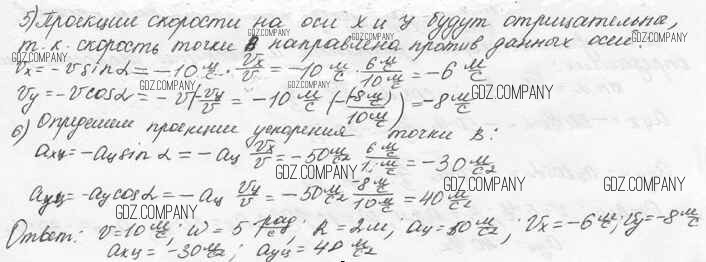 5) Проекции скорости на оси x и y будут отрицательна,
т.к. скорость точки B направлена против данных осей:
Vx = -v sin α = -10 м/с · Vx/V = -10 м/с · 6 м/с / 10 м/с = -6 м/с
Vy = -v cos α = -v (-Vy/V) = -10 м/с (-(-8 м/с) / 10 м/с) = -8 м/с
6) Определим проекции ускорения точки B:
aхц = -aц sin α = -aц Vx/V = -50 м/с² 6 м/с / 10 м/с = -30 м/с²
aуц = -aц cos α = -aц Vy/V = -50 м/с² -8 м/с / 10 м/с = 40 м/с²
Ответ: V = 10 м/с; W = 5 рад/с; R = 2м; aц = 50 м/с²; Vx = -6 м/с; Vy = -8 м/с
aхц = -30 м/с²; aуц = 40 м/с²
GDZ.COMPANY
GDZ.COMPANY
GDZ.COMPANY
GDZ.COMPANY
GDZ.COMPANY
GDZ.COMPANY
GDZ.COMPANY
GDZ.COMPANY
GDZ.COMPANY
GDZ.COMPANY
GDZ.COMPANY
GDZ.COMPANY